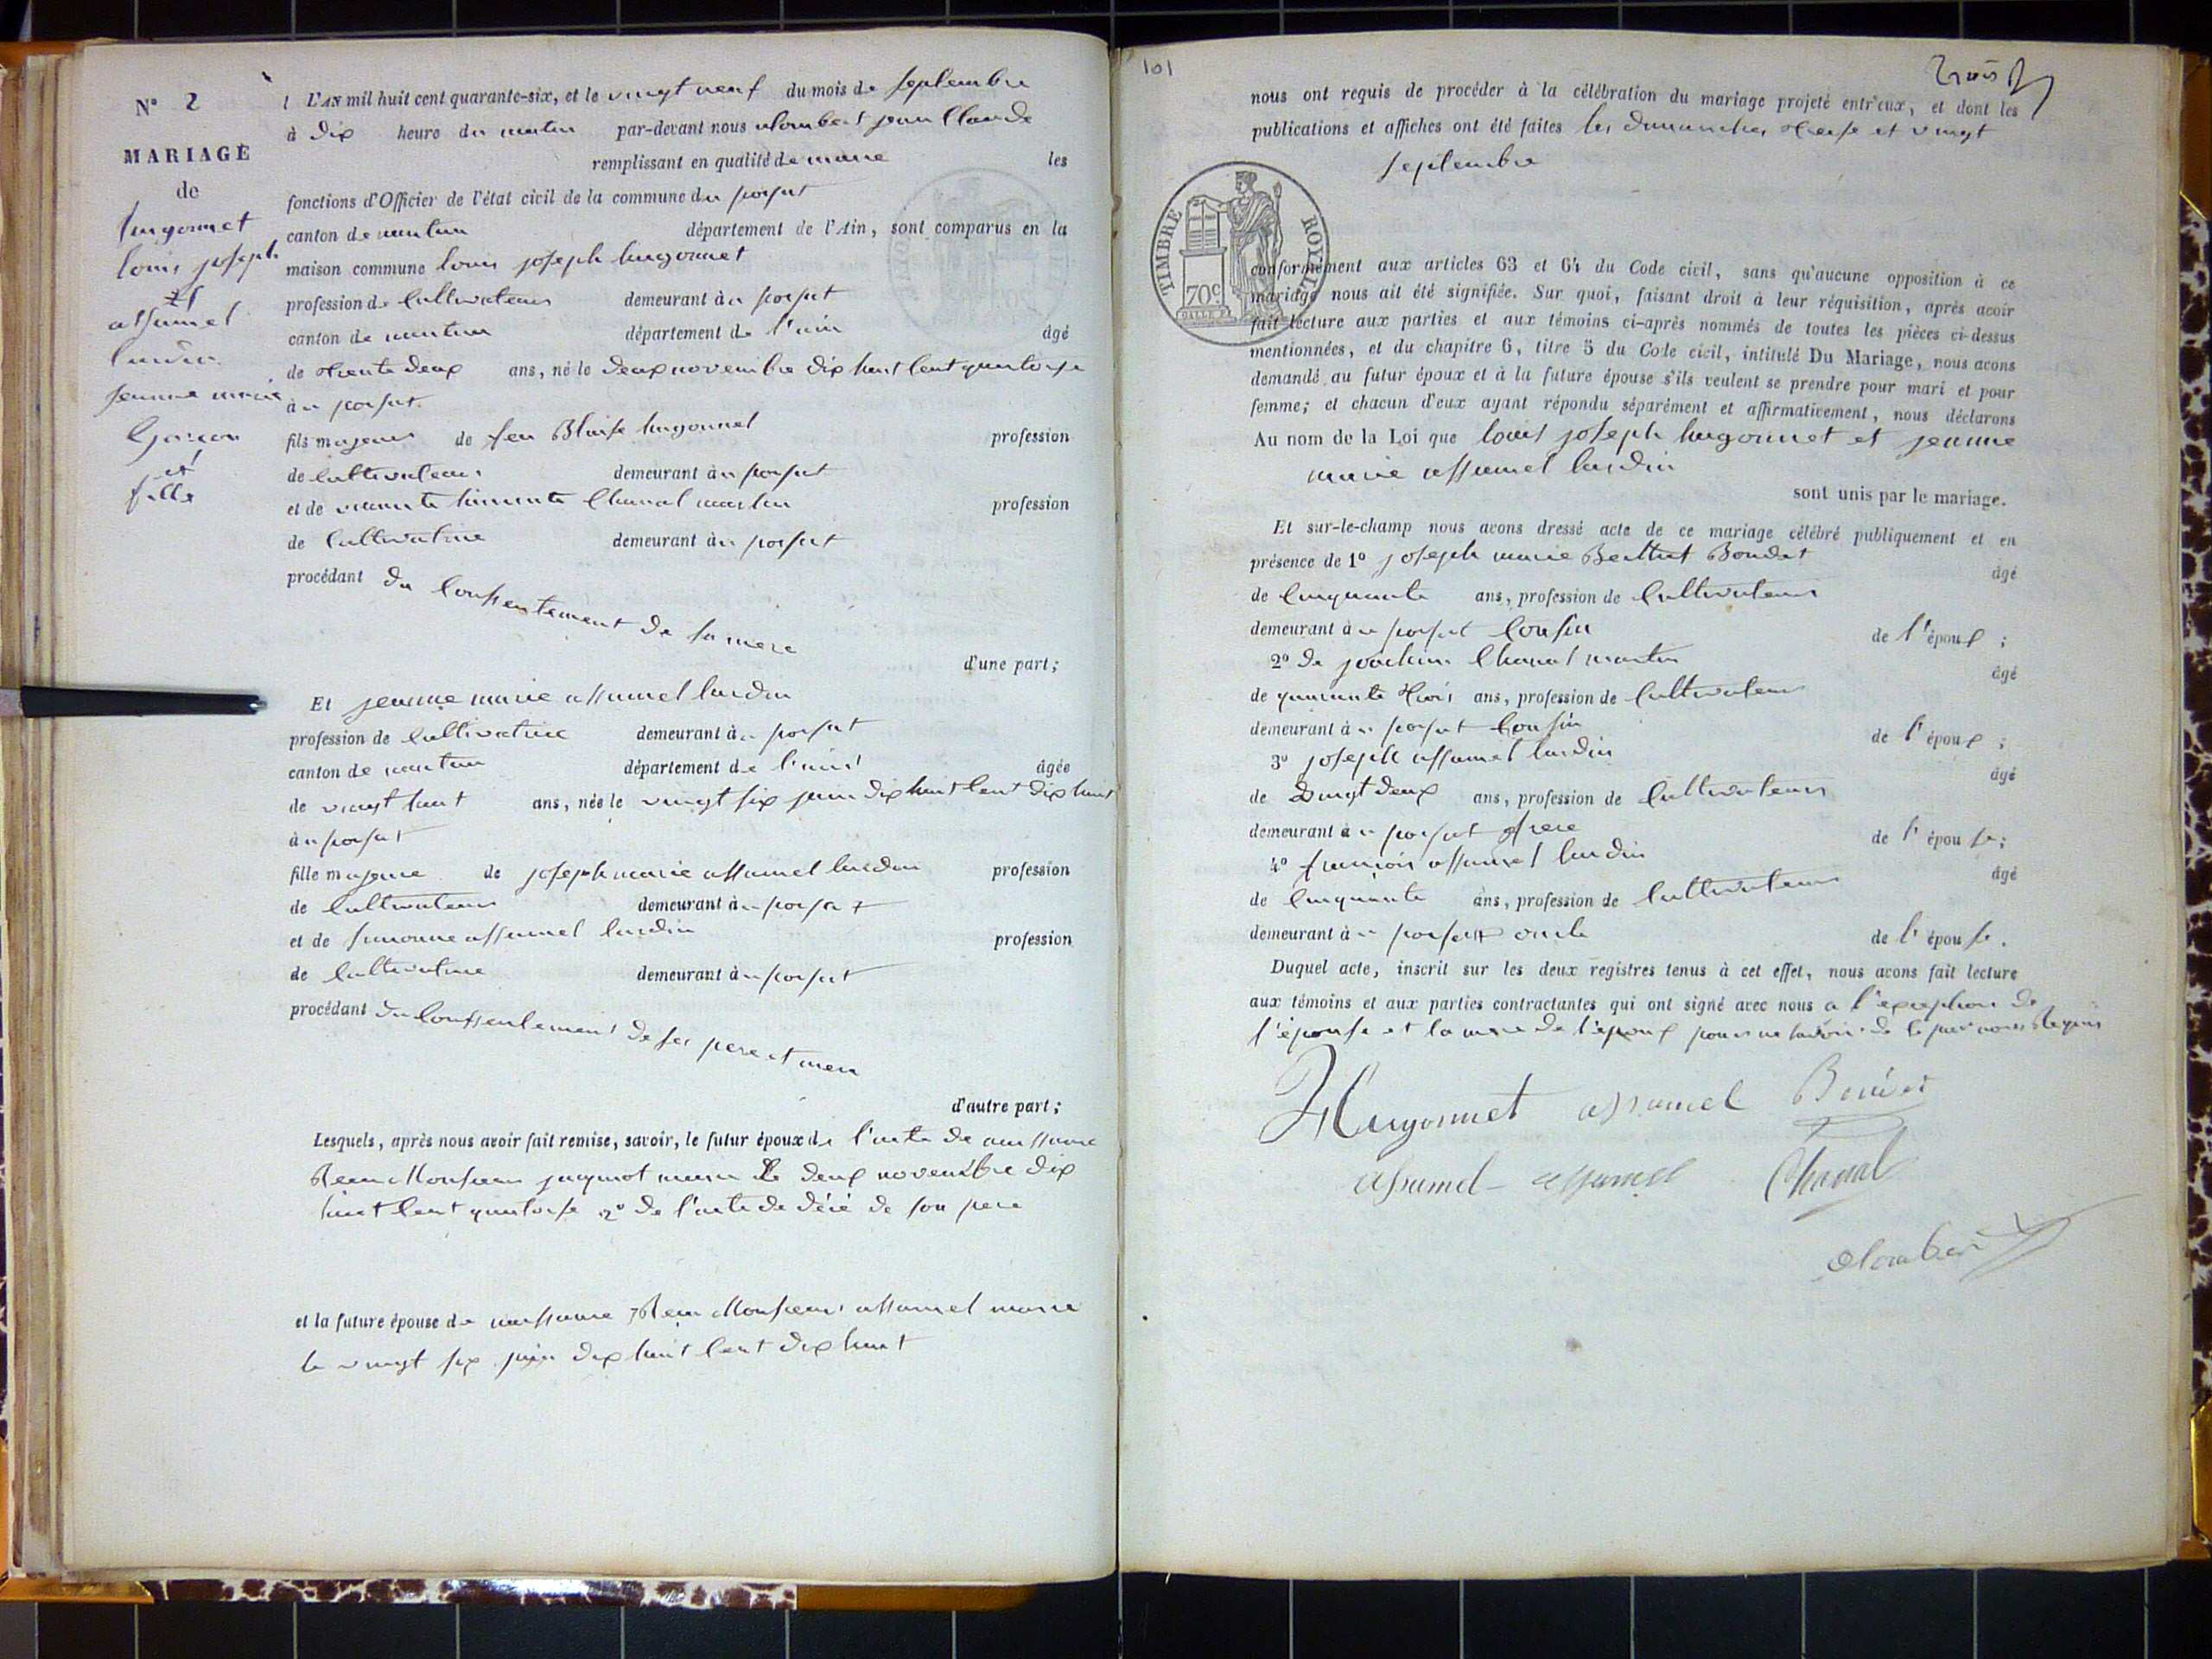 N° 2
MARIAGE
de
hugonnet
louis joseph
et
assumel
lurdin
jeanne marie
Garçon
et
fille
L'AN mil huit cent quarante-six, et le vingt neuf du mois de septembre
à dix heure du matin par-devant nous jean Claude
remplissant en qualité de maire les
fonctions d'Officier de l'état civil de la commune du poisat
canton de nantua département de l'Ain, sont comparus en la
maison commune louis joseph hugonnet
profession de Cultivateur demeurant à u poisat
canton de nantua département de l'ain âgé
de trente deux ans, né le deux novembre dix huit Cent quatorse
à u poisat
fils majeur de feu Blaise hugonnet profession
de Cultivateur demeurant à u poisat
et de Chanal martin profession
de Cultivatrice demeurant à u poisat
procédant du Consentement de sa mere
d'une part;
Et jeanne marie assumel lurdin
profession de Cultivatrice demeurant à u poisat
canton de nantua département de l'ain âgée
de vingt huit ans, née le vingt six juin dix huit Cent dix huit
à u poisat
fille majeure de joseph marie assumel lurdin profession
de Cultivateur demeurant à u poisat
et de assumel lurdin profession
de Cultivatrice demeurant à u poisat
procédant du Consentement de ses pere et mere
d'autre part;
Lesquels, après nous avoir fait remise, savoir, le futur époux de l'acte de naissance
Monsieur jaquot maire le deux novembre dix
huit Cent quatorse 2° de l'acte de décé de son pere
et la future épouse de naissance Monsieur assumel maire
le vingt six juin dix huit Cent dix huit
101
trois
nous ont requis de procéder à la célébration du mariage projeté entr'eux, et dont les
publications et affiches ont été faites les dimanches treise et vingt
septembre
TIMBRE ROYAL
70c
conformément aux articles 63 et 64 du Code civil, sans qu'aucune opposition à ce
mariage nous ait été signifiée. Sur quoi, faisant droit à leur réquisition, après avoir
fait lecture aux parties et aux témoins ci-après nommés de toutes les pièces ci-dessus
mentionnées, et du chapitre 6, titre 5 du Code civil, intitulé Du Mariage, nous avons
demandé au futur époux et à la future épouse s'ils veulent se prendre pour mari et pour
femme; et chacun d'eux ayant répondu séparément et affirmativement, nous déclarons
Au nom de la Loi que louis joseph hugonnet et jeanne
marie assumel lurdin
sont unis par le mariage.
Et sur-le-champ nous avons dressé acte de ce mariage célébré publiquement et en
présence de 1° joseph marie Berthet Bondet
âgé
de Cinquante ans, profession de Cultivateur
demeurant à u poisat Cousin de l'époux;
2° de joachim Chanal martin
âgé
de quarante trois ans, profession de Cultivateur
demeurant à u poisat Cousin de l'époux;
3° joseph assumel lurdin
âgé
de Vingt deux ans, profession de Cultivateur
demeurant à u poisat frere de l'épouse;
4° francois assumel lurdin
âgé
de Cinquante ans, profession de Cultivateur
demeurant à u poisat oncle de l'épouse.
Duquel acte, inscrit sur les deux registres tenus à cet effet, nous avons fait lecture
aux témoins et aux parties contractantes qui ont signé avec nous a l'exception de
l'épouse et la mere de l'époux pour ne savoir de ce par nous
Hugonnet assumel
assumel assumel Chanal